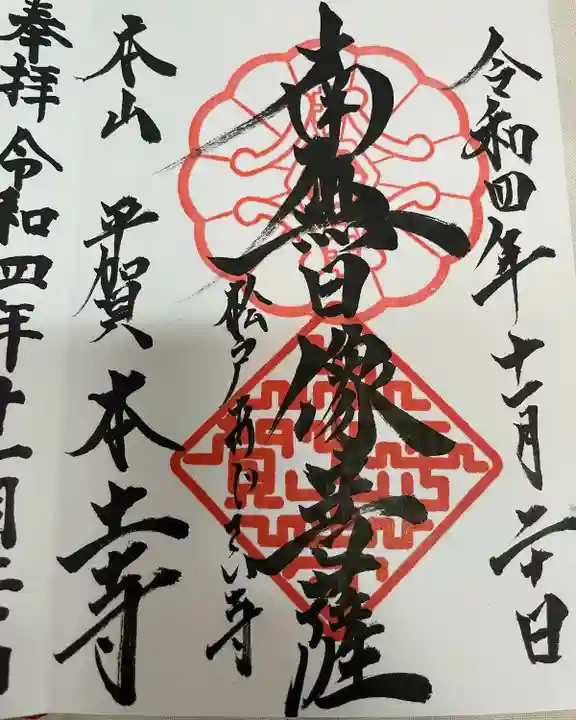 令和四年十一月二十日
南無日像菩薩
松戸あじさい寺
本山 平賀本土寺
奉拝 令和四年十一月二